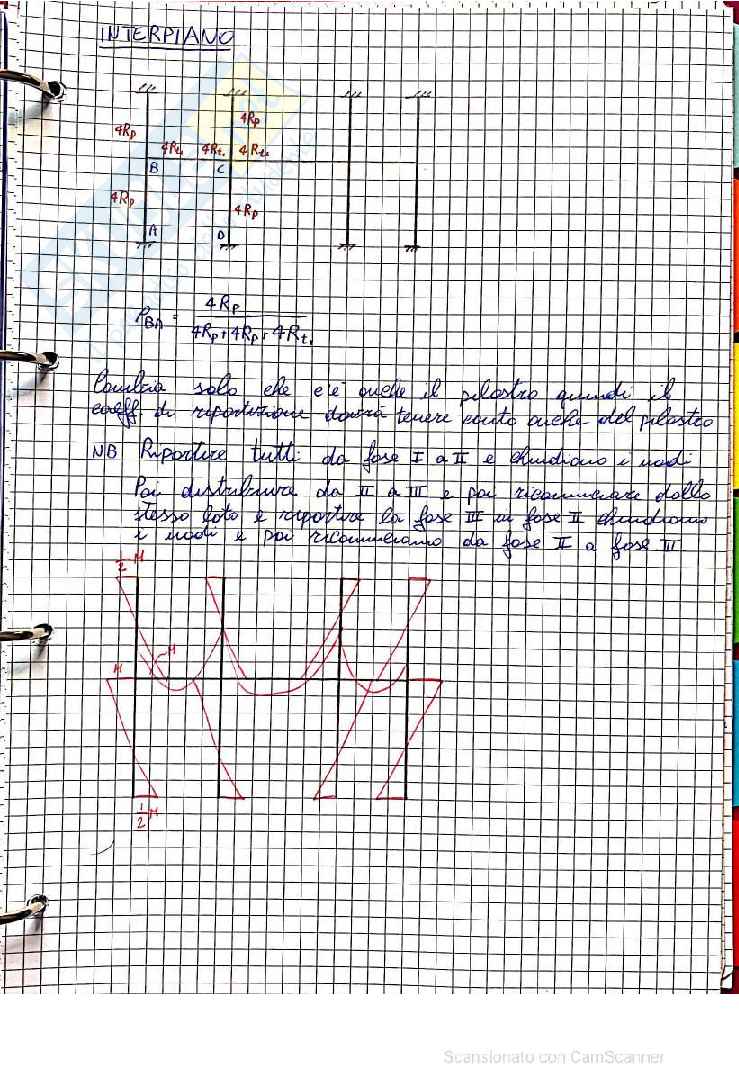 INTERPIANO
4Rp
4Rp
4Rt 4Rt. 4Rt
B C
4Rp
4Rp
A D
ρBA = 4Rp
4Rp + 4Rp + 4Rt.
Cambia solo che c'è anche il pilastro quindi il
coeff. di ripartizione dovrà tenere conto anche del pilastro
NB Ripartire tutti da fase I a II e chiudiamo i nodi
Poi distribuire da II a III e poi ricominciare dallo
stesso lato e riportare la fase III in fase II chiudiamo
i nodi e poi ricominciamo da fase II a fase III
1/2 M
M
M
1/2 M
Scansionato con CamScanner